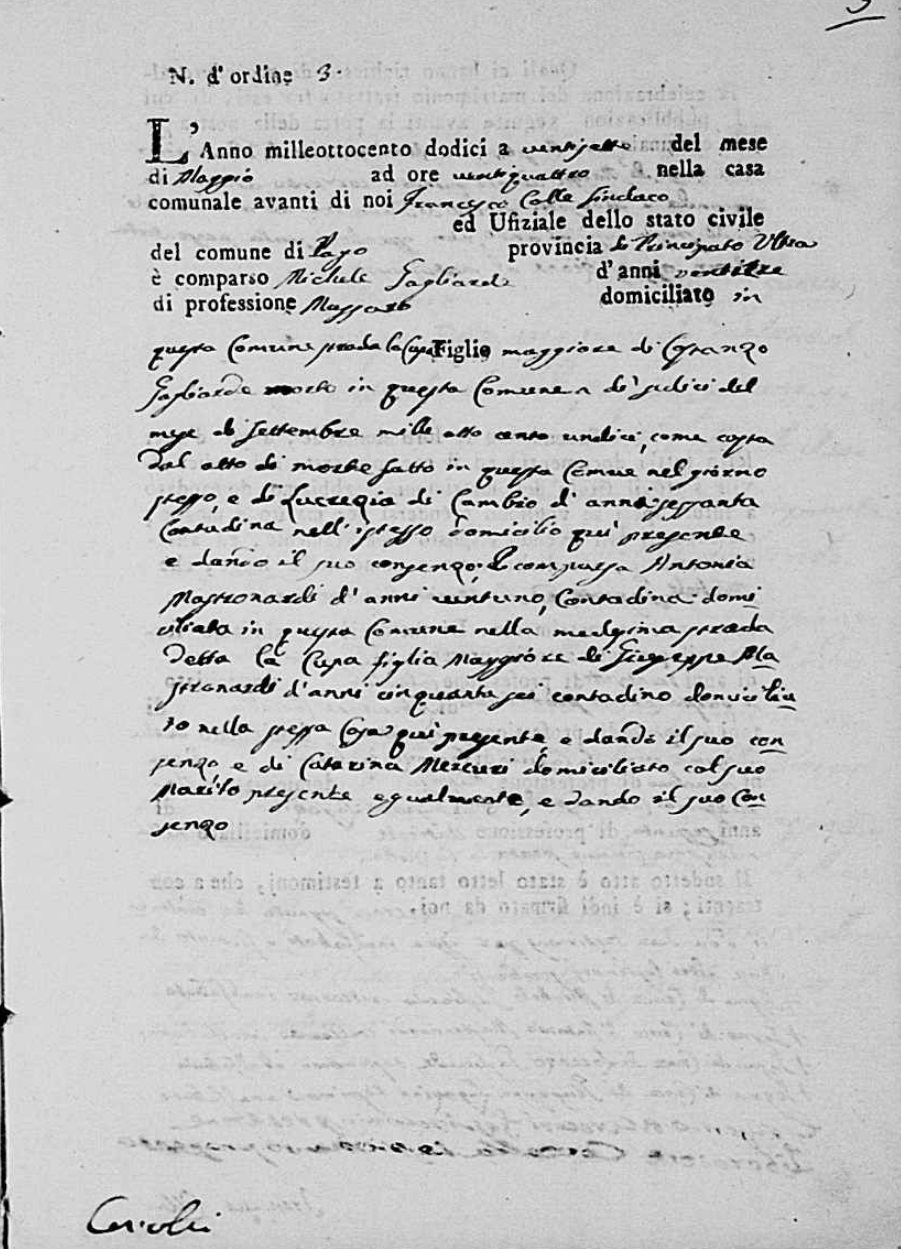 3
N. d'ordine 3.
L'Anno milleottocento dodici a ventisette del mese
di Maggio ad ore ventiquattro nella casa
comunale avanti di noi Francesco Colle Sindaco
ed Ufiziale dello stato civile
del comune di Lapo provincia di Principato Ultra
è comparso Michele Gagliarde d'anni ventitre
di professione Massaro domiciliato in
questa Comune strada la Cupa Figlio maggiore di Costanzo
Gagliarde morto in questa Comune a di sudici del
mese di Settembre mille otto cento undici, come costa
dal atto di morte fatto in questa Comue nel giorno
stesso, e di Lucrezia di Cambio d'anni sessanta
Contadina nell'istesso domicilio quì presente
e dando il suo consenzo; è comparsa Antonia
Mastronardi d'anni ventuno, Contadina domi
ciliata in questa Comune nella medesima strada
detta la Cupa figlia Maggiore di Giuseppe Ma
stronardi d'anni cinquanta sei contadino domicilia
to nella stessa Casa quì presente, e dando il suo con
senzo, e di Catarina Mercuri domiciliato col suo
Marito presente egualmente, e dando il suo Con
senzo